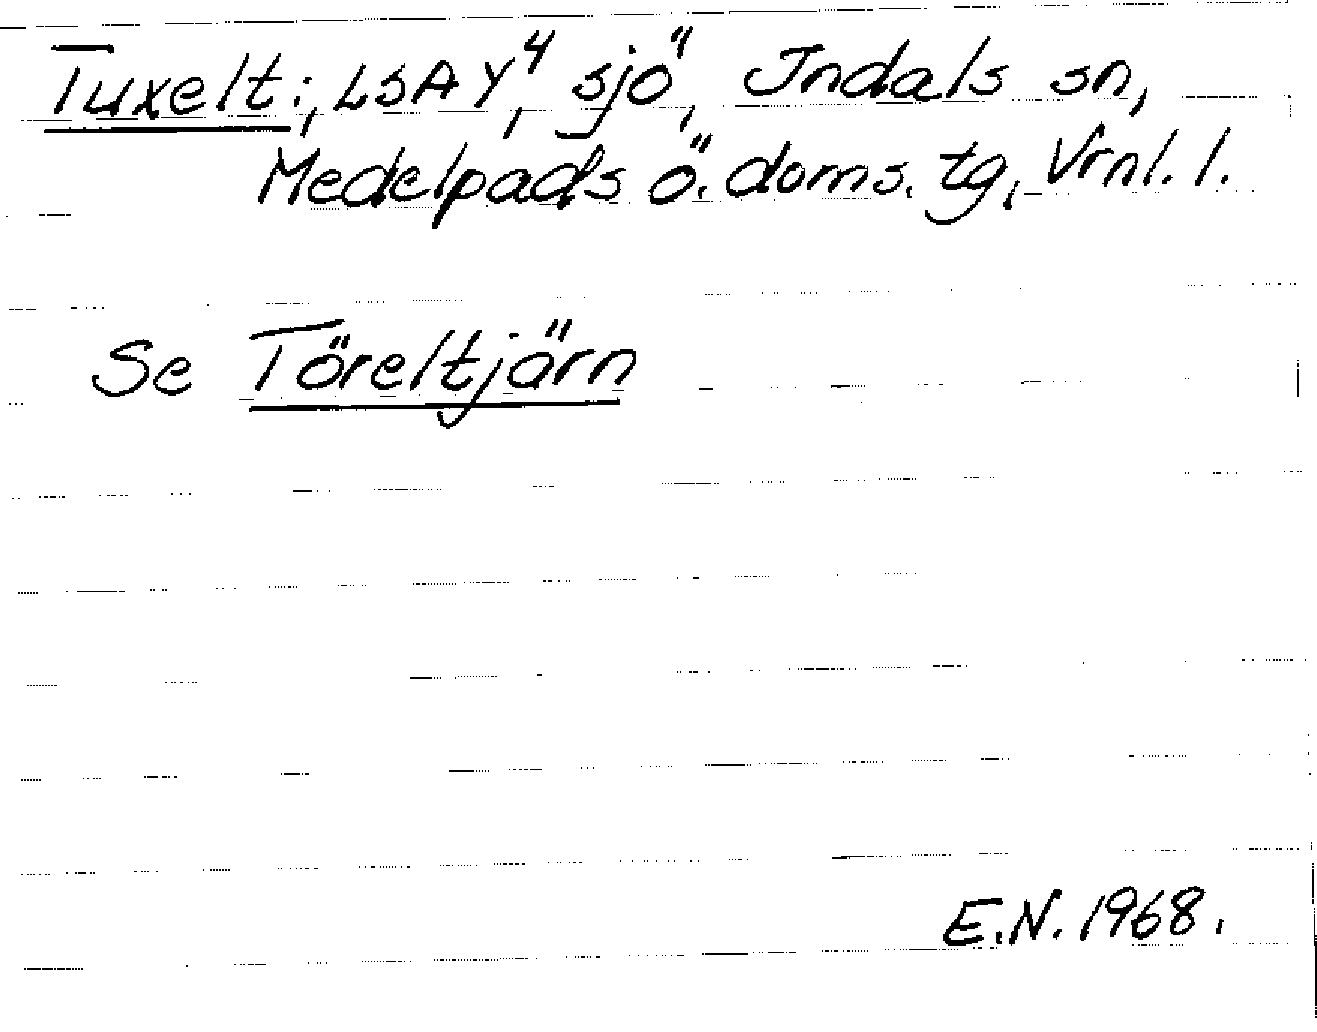 Tuxelt:, LSA Y⁴, sjö, Indals sn,
Medelpads ö. doms. tg, Vrnl. l.
Se Töreltjärn
E.N. 1968.